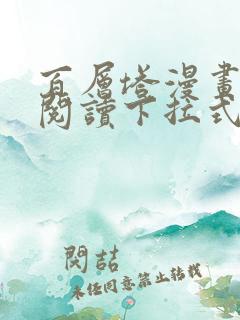 百層塔漫畫
閱讀下拉式
閱喆
未經同意禁止转載